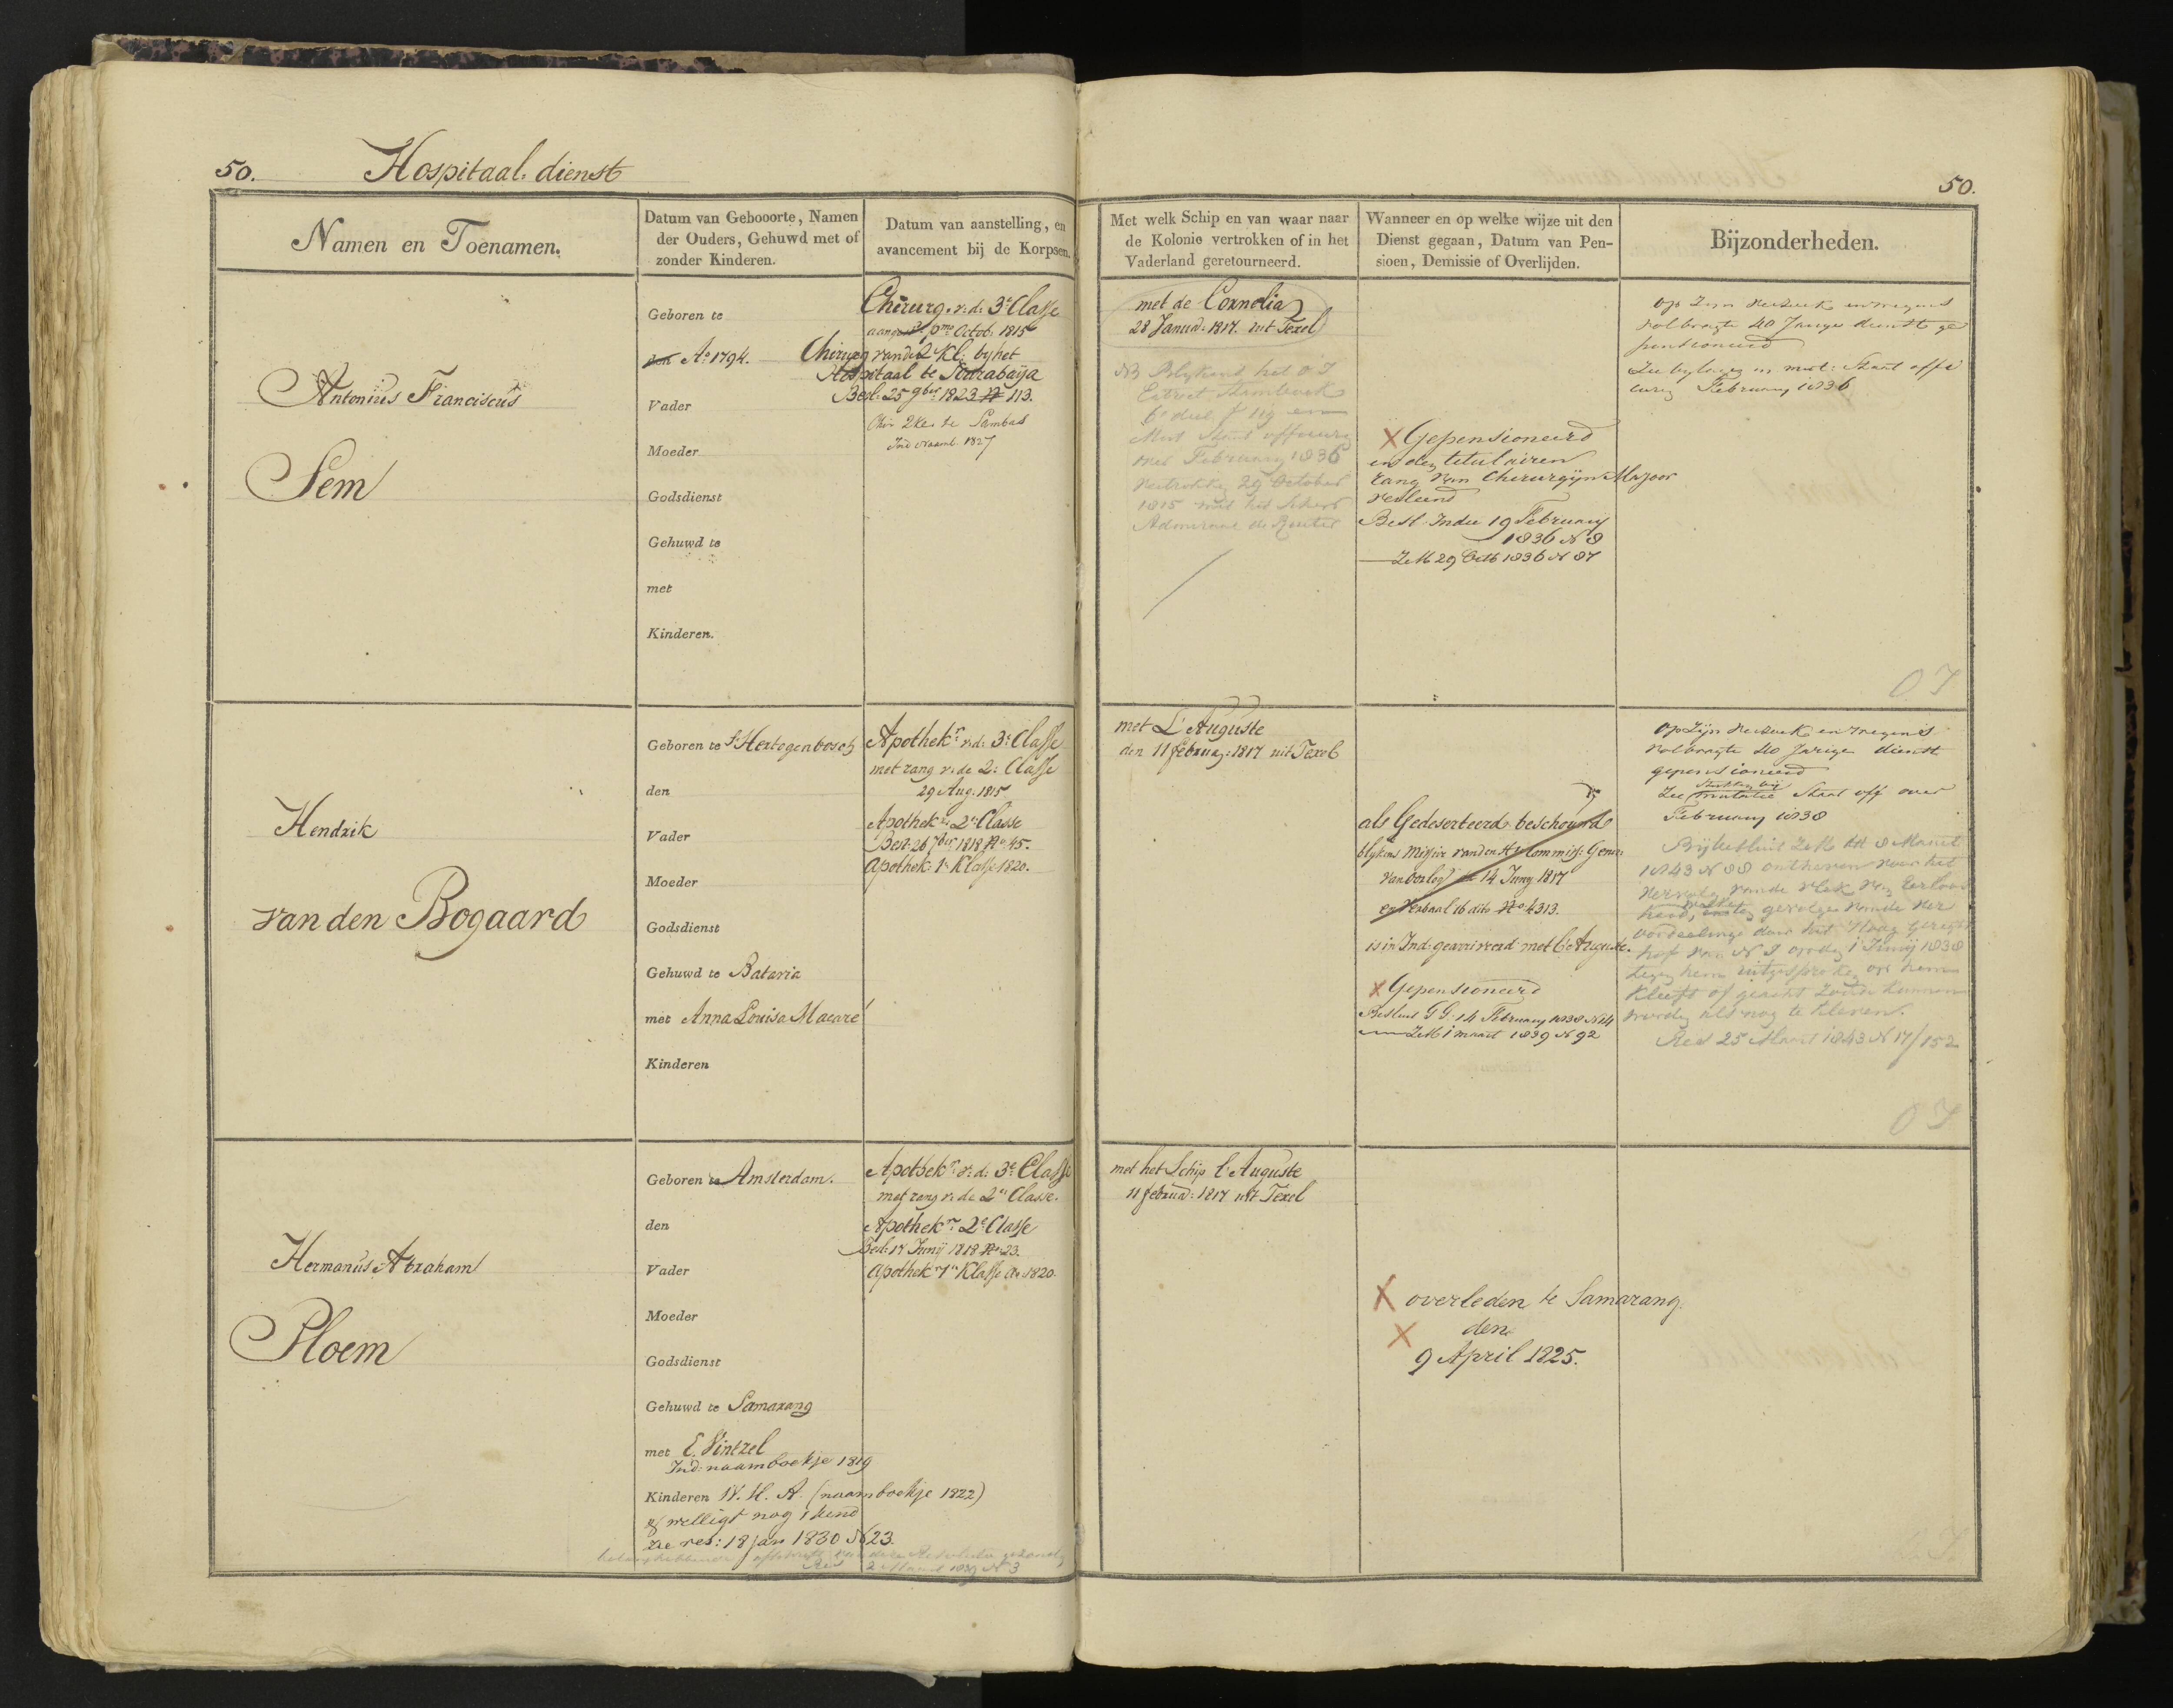 50. Hospitaal. dienst
50.
Namen en Toenamen.
Datum van Gebooorte, Namen
der Ouders, Gehuwd met of
zonder Kinderen.
Datum van aanstelling, en
avancement bij de Korpsen.
Met welk Schip en van waar naar
de Kolonie vertrokken of in het
Vaderland geretourneerd.
Wanneer en op welke wijze uit den
Dienst gegaan, Datum van Pen-
sioen, Demissie of Overlijden.
Bijzonderheden.
Antonius Franciscus
Sem
Geboren te
den Ao. 1794.
Vader
Moeder
Godsdienst
Gehuwd te
met
Kinderen.
Chirurg. v. d. 3e Classe
Octob. 1815
Chirurg van de 2 Kl: by het
Hospitaal te Sourabaija
Besl. 25 9ber 1823 No 113.
Chir 2 Kl. te Sambas
Ind Naaml. 1827
met de Cornelia
28 Janua: 1817. uit Texel
NB Blykens het O I
Extract Stamboek
6e deel f 119 en
Mut Staat officieren
over February 1836
vertrokken 29 October
1815 met het Schip
Admiraal de Ruiter
X Gepensioneerd
en den titulairen
rang van Chirurgijn Majoor
verleend
Besl. Indie 19 February
1836 N 8
ZM 29 Octb 1836 N 87
op zijn verzoek en wegens
volbragte 40 Jarige dienst ge
pensioneerd
Zie bylagen m mut: Staat offi
cieren February 1836
O I
Hendrik
van den Bogaard
Geboren te s'Hertogenbosch
den
Vader
Moeder
Godsdienst
Gehuwd te Batavia
met Anna Louisa Macaré
Kinderen
Apothekr. v.d: 3e Classe
met rang v: de 2: Classe
29 Aug. 1815
Apothekr. 2e Classe
Besl: 26 7ber 1818 No 45.
Apothek: 1e Klasse 1820.
met L'Auguste
den 11 februaj: 1817 uit Texel
als Gedeserteerd beschouwd
blykens Missive van den Hr Commiss: Gener:
van Oorlog 14 Juny 1817
en Verbaal 16 dito No 4313.
is in Ind: gearriveerd met l'Auguste.
X Gepensioneerd
Besluit GG. 14 February 1838 N 14
ZM 1 maart 1839 N 92
Op zijn verzoek en wegens
volbragte 40 Jarige dienst
gepensioneerd
Stukken bij
Zie mutatie Staat off over
February 1838
Bij besluit ZM dd 8 Maart
1843 N 88 ontheven van het
hof van N. I op den 1 Junij 1838
tegen hem uitgesproken op hem
kleeft of geacht zoude kunnen
worden als nog te kleven.
Res 25 Maart 1843 N 17/152
O I
Hermanus Abraham
Ploem
Geboren te Amsterdam.
den
Vader
Moeder
Godsdienst
Gehuwd te Samarang
met E. Vintzel
Ind: naamboekje 1819
Kinderen W. H. A. (naamboekje 1822)
welligt nog 1 kind
Zie res: 18 jan 1830 N 23.
Res 2 Maart N 3
Apothekr. v: d: 3e Classe
met rang v: de 2e Classe.
Apothekr. 2e Classe
Besl: 17 Junij 1818 No 23.
Apothekr 1e Klasse Ao. 1820.
met het Schip l'Auguste
11 februa: 1817 uit Texel
X overleden te Samarang
X den
9 April 1825.